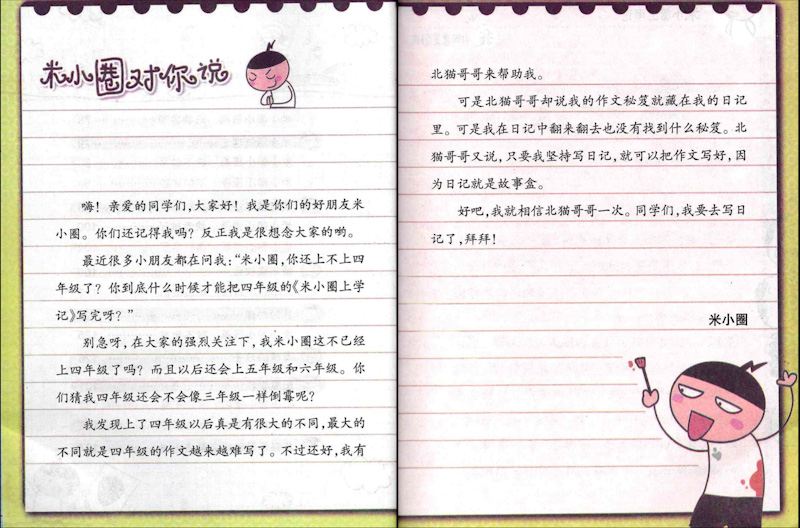 米小圈对你说
嗨！亲爱的同学们，大家好！我是你们的好朋友米
小圈。你们还记得我吗？反正我是很想念大家的哟。
最近很多小朋友都在问我：“米小圈，你还上不上四
年级了？你到底什么时候才能把四年级的《米小圈上学
记》写完呀？”
别急呀，在大家的强烈关注下，我米小圈这不已经
上四年级了吗？而且以后还会上五年级和六年级。你
们猜我四年级还会不会像三年级一样倒霉呢？
我发现上了四年级以后真是有很大的不同，最大的
不同就是四年级的作文越来越难写了。不过还好，我有
北猫哥哥来帮助我。
可是北猫哥哥却说我的作文秘笈就藏在我的日记
里。可是我在日记中翻来翻去也没有找到什么秘笈。北
猫哥哥又说，只要我坚持写日记，就可以把作文写好，因
为日记就是故事盒。
好吧，我就相信北猫哥哥一次。同学们，我要去写日
记了，拜拜！
米小圈